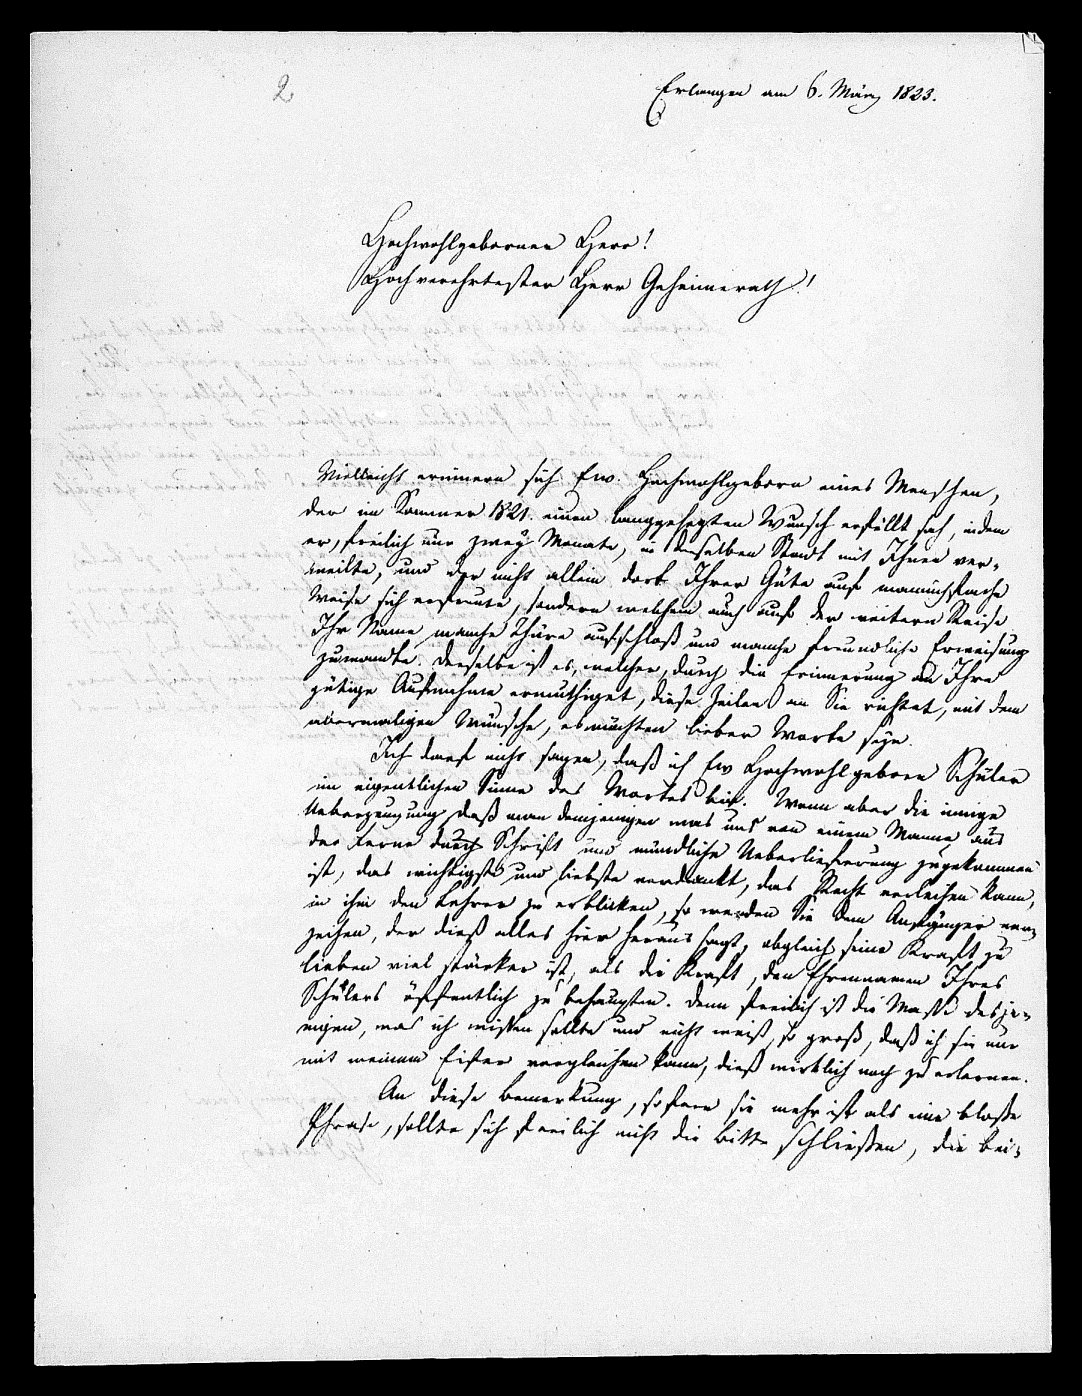 2
Erlangen am 6. März 1823.
Hochwohlgeborner Herr!
Hochverehrtester Herr Geheimerath!
Vielleicht erinnern sich Ew. Hochwohlgeborn eines Menschen,
der im Sommer 1821. einen langgehegten Wunsch erfüllt sah, indem
er, freilich nur zwey Monate, in derselben Stadt mit Ihnen ver-
weilte, und der nicht allein dort Ihrer Güte auf mannichfache
Weise sich erfreute, sondern welchem auch auf der weitern Reise
Ihr Name manche Thüre aufschloß und manche freundliche Erweisung
zuwandte. Derselbe ist es, welcher, durch die Erinnerung an Ihre
gütige Aufnahme ermuthiget, diese Zeilen an Sie richtet, mit dem
abermaligen Wunsche, es möchten lieber Worte seyn.
Ich darf nicht sagen, daß ich Ew Hochwohlgeborn Schüler
im eigentlichen Sinne des Wortes bin. Wenn aber die innige
Ueberzeugung, daß man demjenigen was uns von einem Manne aus
der Ferne durch Schrift und mündliche Ueberlieferung zugekommen
ist, das wichtigste und liebste verdankt, das Recht verleihen kann,
in ihm den Lehrer zu erblicken, so werden Sie dem Anfänger ver-
zeihen, der dieß alles hier heraus sagt, obgleich seine Kraft zu
lieben viel stärker ist, als die Kraft, den Ehrennamen Ihres
Schülers öffentlich zu behaupten. Denn freilich ist die Masse desje-
nigen, was ich wissen sollte und nicht weiß, so groß, daß ich sie nur
mit meinem Eifer vergleichen kann, dieß wirklich noch zu erlernen.
An diese Bemerkung, sofern sie mehr ist als eine bloße
Phrase, sollte sich freilich nicht die Bitte schließen, die bei-